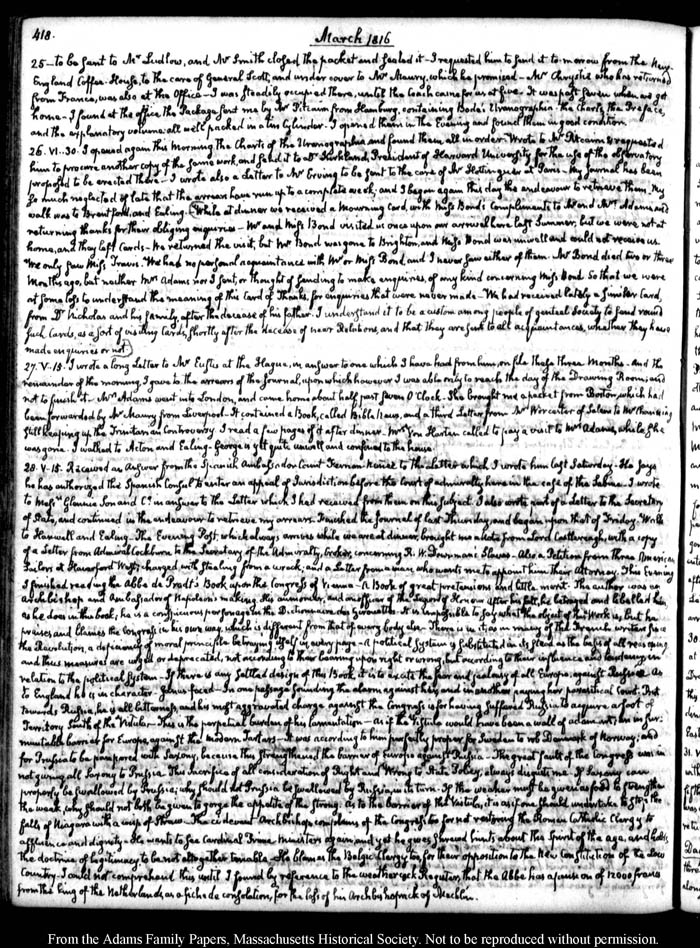 418.
March 1816
25—to be sent to Mr Ludlow, and Mr Smith closed the packet and sealed it—I requested him to send it to-morrow from the New-
England Coffee-House, to the care of General Scott, and under cover to Mr Maury, which he promised—Mr Chrystie who has returned
from France, was also at the Office—I was steadily occupied there, until the Coach came for us at five. It was past seven when we got
home—I found at the office the Package sent me by Mr Pitcairn from Hamburg, containing Bode's Uranographia—the Charts, the Preface,
and the explanatory volume all well packed in a tin Cylinder. I opened them in the Evening and found them in good condition.
26. VI..30. I opened again this Morning the Charts of the Uranographia and found them all in order. Wrote to Mr Pitcairn & requested
him to procure another copy of the same work, and send it to Dr Kirkland, President of Harvard University for the use of the observatory
proposed to be erected there—I wrote also a Letter to Mr Erving to be sent to the care of Mr Hottinguer at Paris. My Journal has been
so much neglected of late that the arrears have run up to a complete week, and I began again this day the endeavour to retrieve them. My
walk was to Brentford, and Ealing. While at dinner we received a Mourning Card, with Miss Bond's Compliments to Mr and Mrs Adams and
returning thanks for their obliging enquiries—Mr and Miss Bond visited us once upon our arrival here last Summer, but we were not at
home, and they left Cards—We returned the visit, but Mr Bond was gone to Brighton, and Miss Bond was unwell and could not receive us.
We only saw Miss Travis. We had no personal acquaintance with Mr or Miss Bond, and I never saw either of them. Mr Bond died two or three
Months ago, but neither Mrs Adams nor I sent, or thought of sending to make enquiries, of any kind concerning Miss Bond. So that we were
at some loss to understand the meaning of this Card of Thanks, for enquiries that were never made—We had received lately a similar Card,
from Dr Nicholas and his family, after the decease of his father. I understand it to be a custom among people of genteel Society to send round
such Cards, as a sort of visiting Cards, shortly after the decease of near Relations, and that they are sent to all acquaintances, whether they have
made enquiries or not.
27. V..15. I wrote a long Letter to Mr Eustis at the Hague, in answer to one which I have had from him, on file these three Months. And the
remainder of the morning, I gave to the arrears of the Journal, upon which however I was able only to reach the day of the Drawing Room; and
not to finish it. Mrs Adams went into London, and came home about half past seven O'Clock. She brought me a packet from Boston, which had
been forwarded by Mr Maury from Liverpool. It contained a Book, called Bible News, and a third Letter from Mr Worcester of Salem to Mr Channing
still keeping up the Trinitarian Controversy. I read a few pages of it after dinner. Mrs Von Harten called to pay a visit to Mrs Adams, while she
was gone. I walked to Acton and Ealing. George is yet quite unwell and confined to the house.
28. V..15. Received an Answer from the Spanish Ambassador Count Fernan-Nuñez to the Letter which I wrote him last Saturday. He says
he has authorized the Spanish Consul to enter an appeal of Jurisdiction before the Court of admiralty here in the case of the Sabine. I wrote
to Messrs Glennie Son and Co. in answer to the Letter which I had received from them on the subject. I also wrote part of a letter to the Secretary
of State, and continued in the endeavour to retrieve my arrears. Finished the Journal of last Thursday, and began upon that of Friday. Walk
to Hanwell and Ealing. The Evening Post, which always arrives while we are at dinner, brought me a Note from Lord Castlereagh, with a copy
of a Letter from Admiral Cockburn to the Secretary of the Admiralty, Croker, concerning R. H. Downman's Slaves—Also a Petition from three American
Sailors at Haverford West, charged with stealing from a wreck, and a Letter from a man, who wants me to appoint him their Attorney. This Evening
I finished reading the Abbé de Pradt's Book upon the Congress of Vienna—A Book of great pretensions and little merit. The author was an
Archbishop and Ambassador of Napoleon's making. His almoner, and an officer of the Legion of Honor. After his fall, he betrayed and libelled him,
as he does in this book; he is a conspicuous personage in the Dictionnaire des Girouettes. It is impossible to say what the object of his Work is, but he
praises and blames the Congress in his own way, which is different from that of every body else. There is in it, as in many of the French writers since
the Revolution, a deficiency of moral principle betraying itself in every page—A political System is substituted in its stead as the basis of all reasoning
and thus measures are urged or deprecated, not according to their bearing upon right or wrong, but according to their influence and tendency in
relation to the political System—If there is any settled design of this Book, it is to excite the fear and jealousy of all Europe against Russia. As
to England he is in character Janus-faced—In one passage sounding the alarm against her, and in another paying her parasitical Court. But
towards Russia, he is all bitterness, and his most aggravated charge against the Congress is for having suffered Russia to acquire a foot of
Territory South of the Vistula. This is the perpetual burden of his lamentation—as if the Vistula would have been a wall of adamant, an insur-
mountable barrier for Europe, against the modern Tartars—It was according to him perfectly proper for Sweden to rob Denmark of Norway; and
for Prussia to be pampered with Saxony, because this strengthened the barrier of Europe against Russia—The great fault of the Congress was in
not giving all Saxony to Prussia. This sacrifice of all consideration of Right and Wrong to State Policy, always disgusts me. If Saxony can
properly be swallowed by Prussia; why should not Prussia be swallowed by Russia in its turn. If the weaker must be given as food to strengthen
the weak, why should not both be given to gorge the appetite of the strong. As to the barrier of the Vistula, it is as if one should undertake to stop the
falls of Niagara with a wisp of Straw. The ci-devant Archbishop complains of the Congress too for not restoring the Roman Catholic Clergy to
affluence and dignity—He wants to see Cardinal Prime Ministers again, and yet he gives shrewd hints about the Spirit of the age, and holds
the doctrine of legitimacy to be not altogether tenable. He blames the Belgic Clergy too, for their opposition to the New Constitution of the Low
Country. I could not comprehend this until I found by reference to the weathercock Register, that the Abbé has a pension of 12000 francs
from the King of the Netherlands, as a fiche de consolation, for the loss of his Archbishoprick of Mechlin.
From the Adams Family Papers, Massachusetts Historical Society. Not to be reproduced without permission.